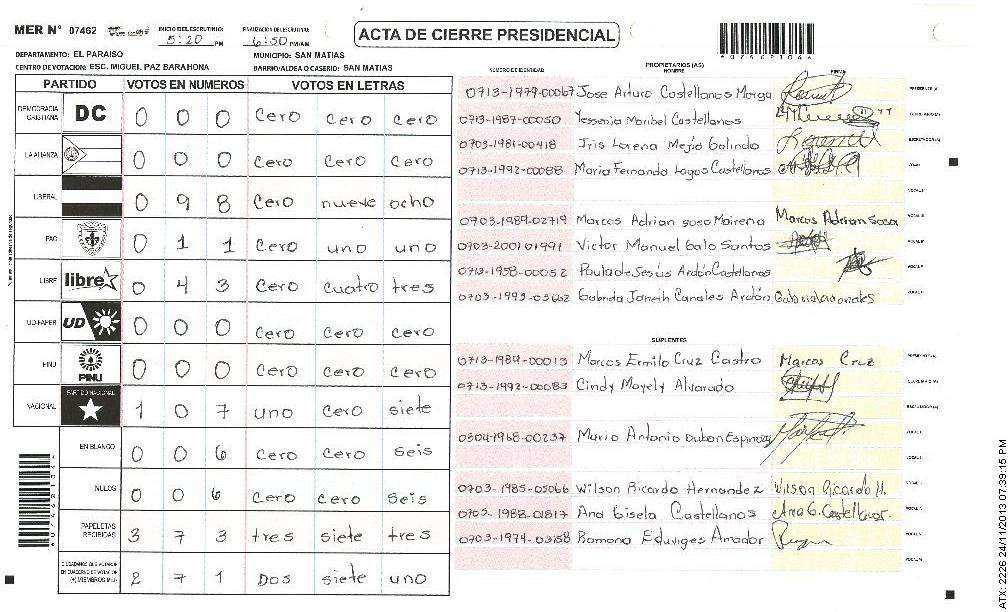 MER N° 07462
INICIO DEL ESCRUTINIO:
5:20 PM
FINALIZACION DEL ESCRUTINIO:
6:50 PM/AM
ACTA DE CIERRE PRESIDENCIAL
*07462106*
DEPARTAMENTO: EL PARAISO
MUNICIPIO: SAN MATIAS
CENTRO DE VOTACION: ESC. MIGUEL PAZ BARAHONA
BARRIO/ALDEA O CASERIO: SAN MATIAS
PARTIDO VOTOS EN NUMEROS VOTOS EN LETRAS
DEMOCRACIA CRISTIANA DC 0 0 0 Cero Cero Cero
LA ALIANZA 0 0 0 Cero Cero Cero
LIBERAL 0 9 8 Cero nueve ocho
PAC 0 1 1 Cero uno uno
LIBRE libre 0 4 3 Cero cuatro tres
UD-FAPER UD 0 0 0 Cero Cero Cero
PINU PINU 0 0 0 Cero Cero Cero
NACIONAL PARTIDO NACIONAL 1 0 7 uno Cero siete
EN BLANCO 0 0 6 Cero Cero seis
NULOS 0 0 6 Cero Cero Seis
PAPELETAS RECIBIDAS 3 7 3 tres siete tres
CIUDADANOS QUE VOTARON EN CUADERNO DE VOTACION (+) MIEMBROS MER 2 7 1 Dos siete uno
PROPIETARIOS (AS)
NUMERO DE IDENTIDAD NOMBRE FIRMA
0713-1979-00067 Jose Arturo Castellanos Morga PRESIDENTE (A)
0713-1987-00050 Yessenia Maribel Castellanos SECRETARIO (A)
0703-1981-00418 Iris Lorena Mejia Galindo Lorena ESCRUTADOR (A)
0713-1992-00088 Maria Fernanda Lagos Castellanos
0703-1989-02719 Marcos Adrian sosa Moirena Marcos Adrian Sosa
0703-2001-01991 Victor Manuel Galo Santos
0713-1958-00052 Paula de Jesús Ardón Castellanos
0703-1993-03662 Gabriela Janeth Canales Ardón Gabriela canales
SUPLENTES
0713-1984-00013 Marcos Ermilo Cruz Castro Marcos Cruz PRESIDENTE (A)
0713-1992-00083 Cindy Mayely Alvarado SECRETARIO (A)
ESCRUTADOR (A)
0304-1968-00237 Mario Antonio Dubon Espinoza
0703-1985-05066 Wilson Ricardo Hernandez Wilson Ricardo H.
0702-1988-01817 Ana Gisela Castellanos Ana G. Castellanos.
0703-1974-03158 Ramona Eduviges Amador
ATX: 2226 24/11/2013 07:39:15 PM